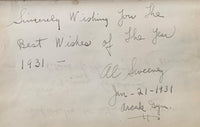 Sincerely Wishing You The
Best Wishes of The Year
1931 -
Al Sweeney
Jan - 21 - 1931